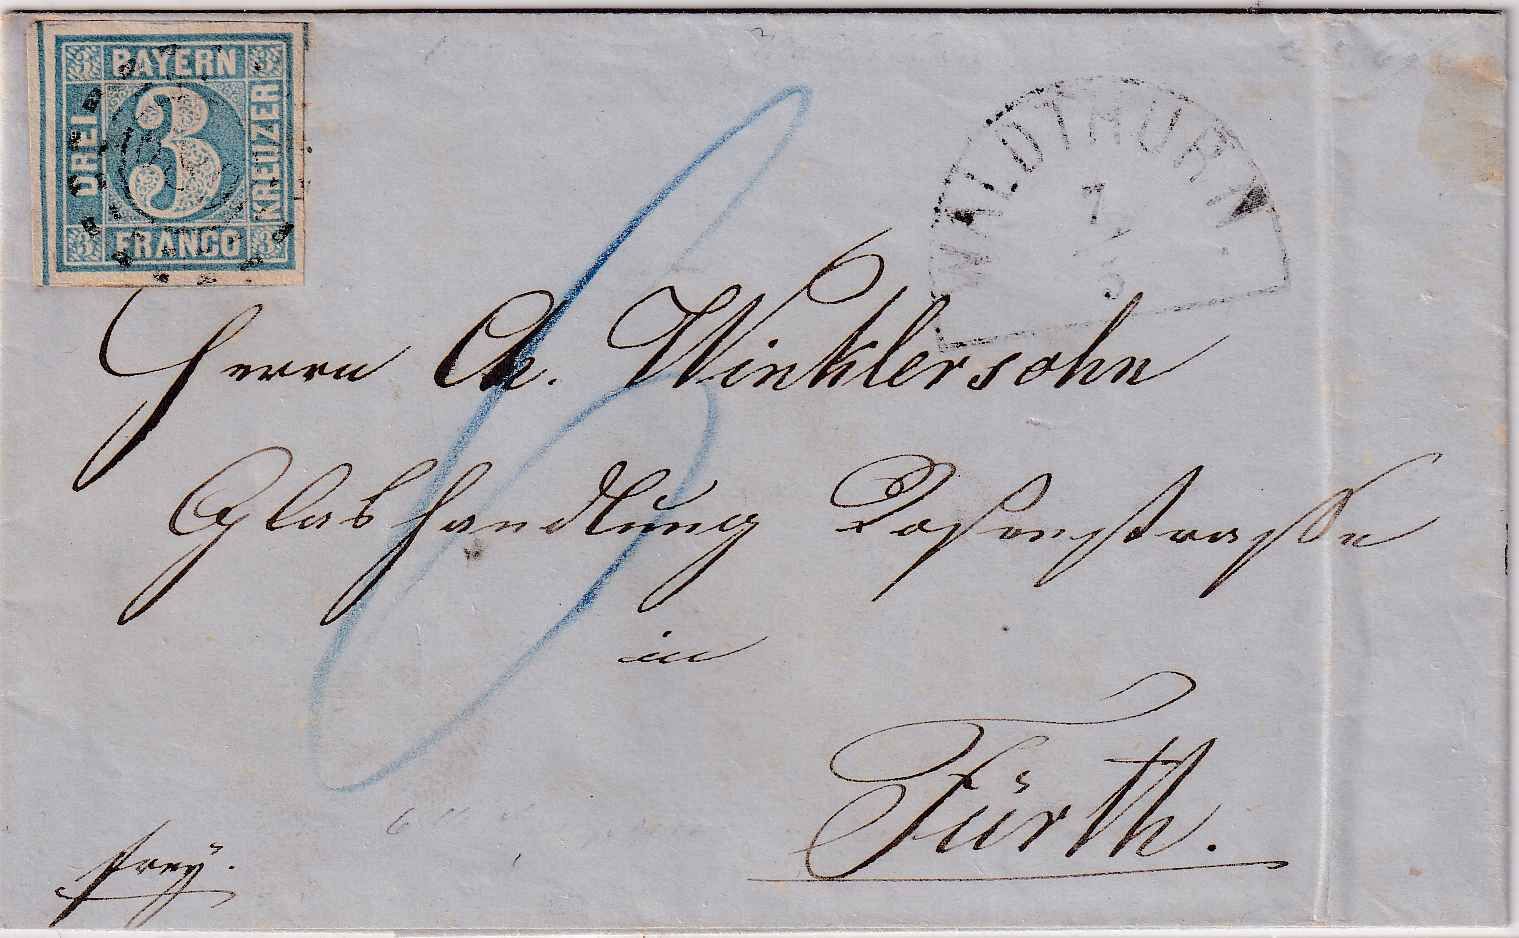 BAYERN
DREI
3
KREUZER
FRANCO
WALDTHURN
7
5
Herrn Ch. Winklersohn
Glashandlung Rosenstraße
in
Fürth.
frey.